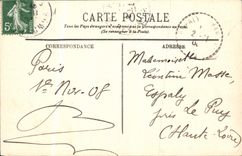 CARTE POSTALE
Tous les Pays étrangers n'acceptent pas la Correspondance au recto
(Se renseigner à la Poste)
CORRESPONDANCE
ADRESSE
Paris
Nov. 08
Mademoiselle
Léontine Masse
Espaly
près Le Puy
(Haute-Loire)